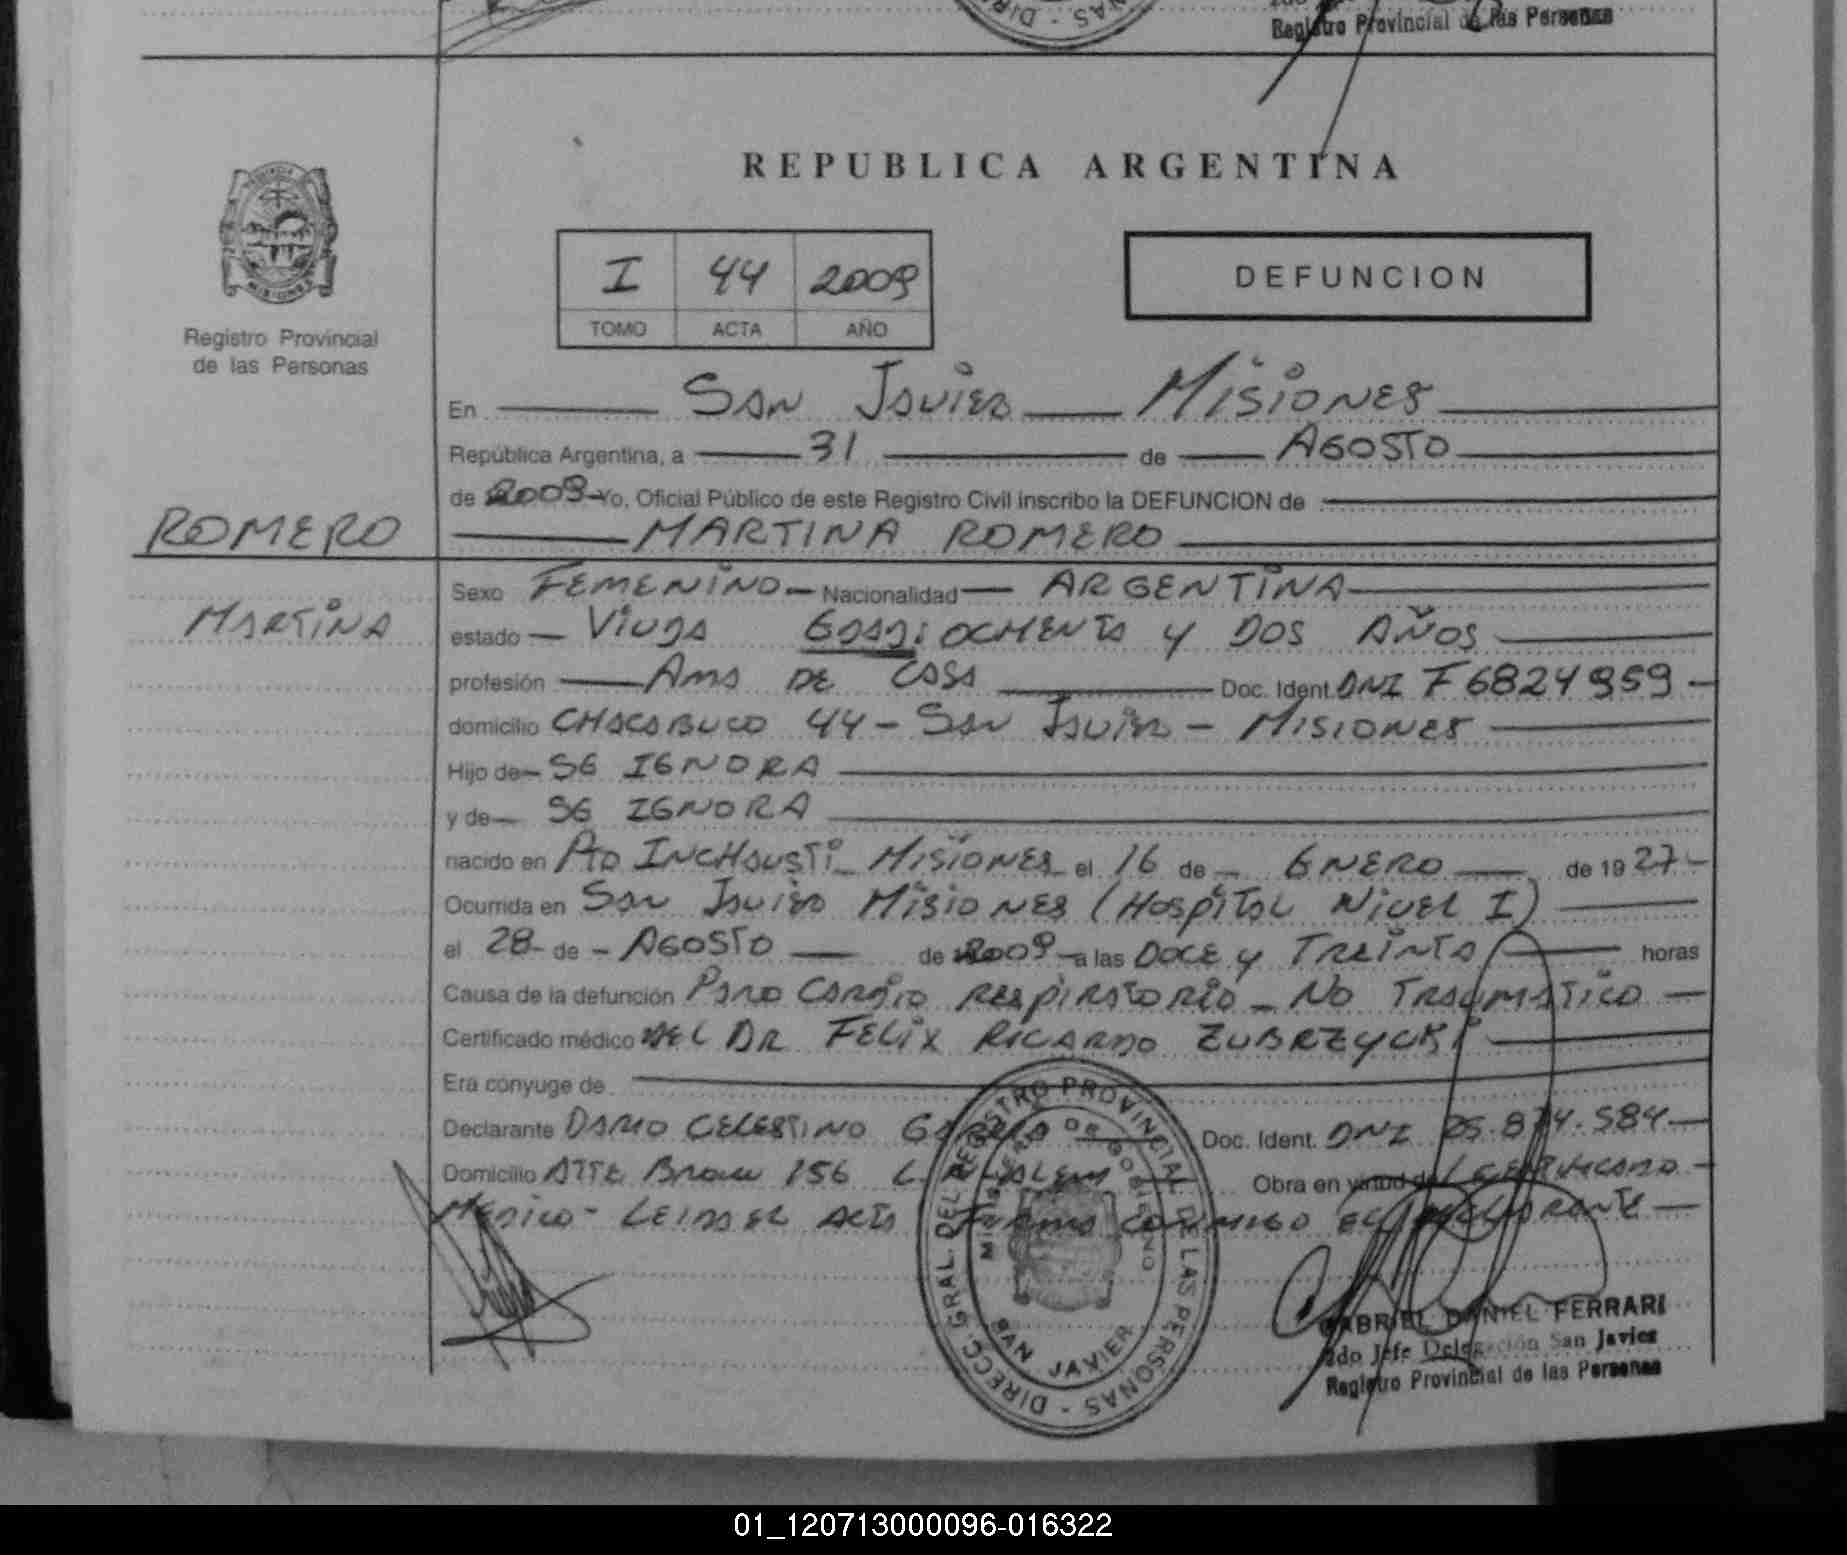 Registro Provincial de las Personas
REPUBLICA ARGENTINA
I 44 2009
TOMO ACTA AÑO
DEFUNCION
Registro Provincial
de las Personas
En San Javier Misiones
República Argentina, a 31 de AGOSTO
de 2009 Yo, Oficial Público de este Registro Civil inscribo la DEFUNCION de
ROMERO
MARTINA ROMERO
MARTINA
Sexo FEMENINO Nacionalidad ARGENTINA
estado Viuda Edad: OCHENTA y DOS AÑOS
profesión Ama DE CASA Doc. Ident. DNI F 6824959
domicilio CHACABUCO 44 - San Javier - MISIONES
Hijo de SE IGNORA
y de SE IGNORA
nacido en Pto INCHAUSTI - MISIONES el 16 de ENERO de 1927
Ocurrida en San Javier MISIONES (Hospital Nivel I)
el 28 de AGOSTO de 2009 a las DOCE y TREINTA horas
Causa de la defunción Paro Cardio RESPIRATORIO - NO TRAUMATICO
Certificado médico DEL DR FELIX RICARDO ZUBRZYCKI
Era cónyuge de
Declarante DARIO CELESTINO Doc. Ident. DNI 25.874.584
Domicilio ALTE Brown 156 L. N. ALEM Obra en virtud de CERTIFICADO
MEDICO - LEIDA EL ACTA FIRMA CONMIGO EL DECLARANTE
DIRECC. GRAL. DEL REGISTRO PROVINCIAL DE LAS PERSONAS
MINISTERIO DE GOBIERNO
SAN JAVIER
GABRIEL DANIEL FERRARI
2do Jefe Delegación San Javier
Registro Provincial de las Personas
01_120713000096-016322